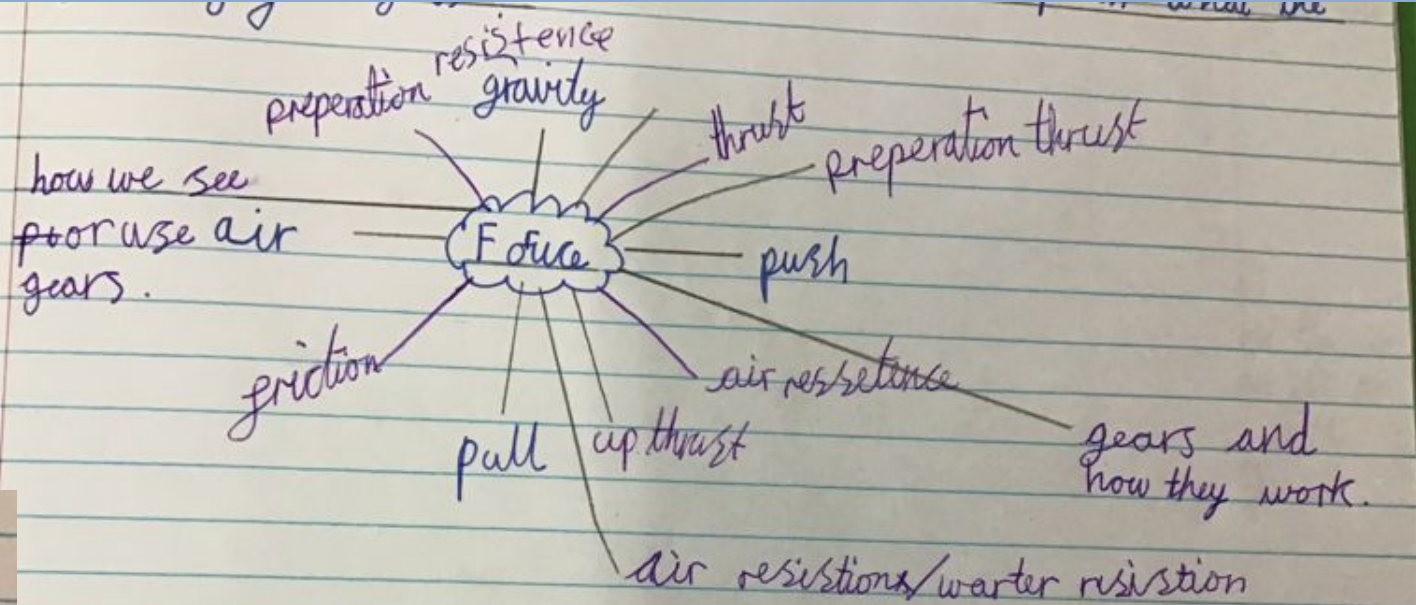 what the
resistence
preperation gravity
thrust
preperation thrust
how we see
or use air
gears.
Fouce
push
friction
air ressetence
pull
up thrust
gears and
how they work.
air resistions/warter risistion